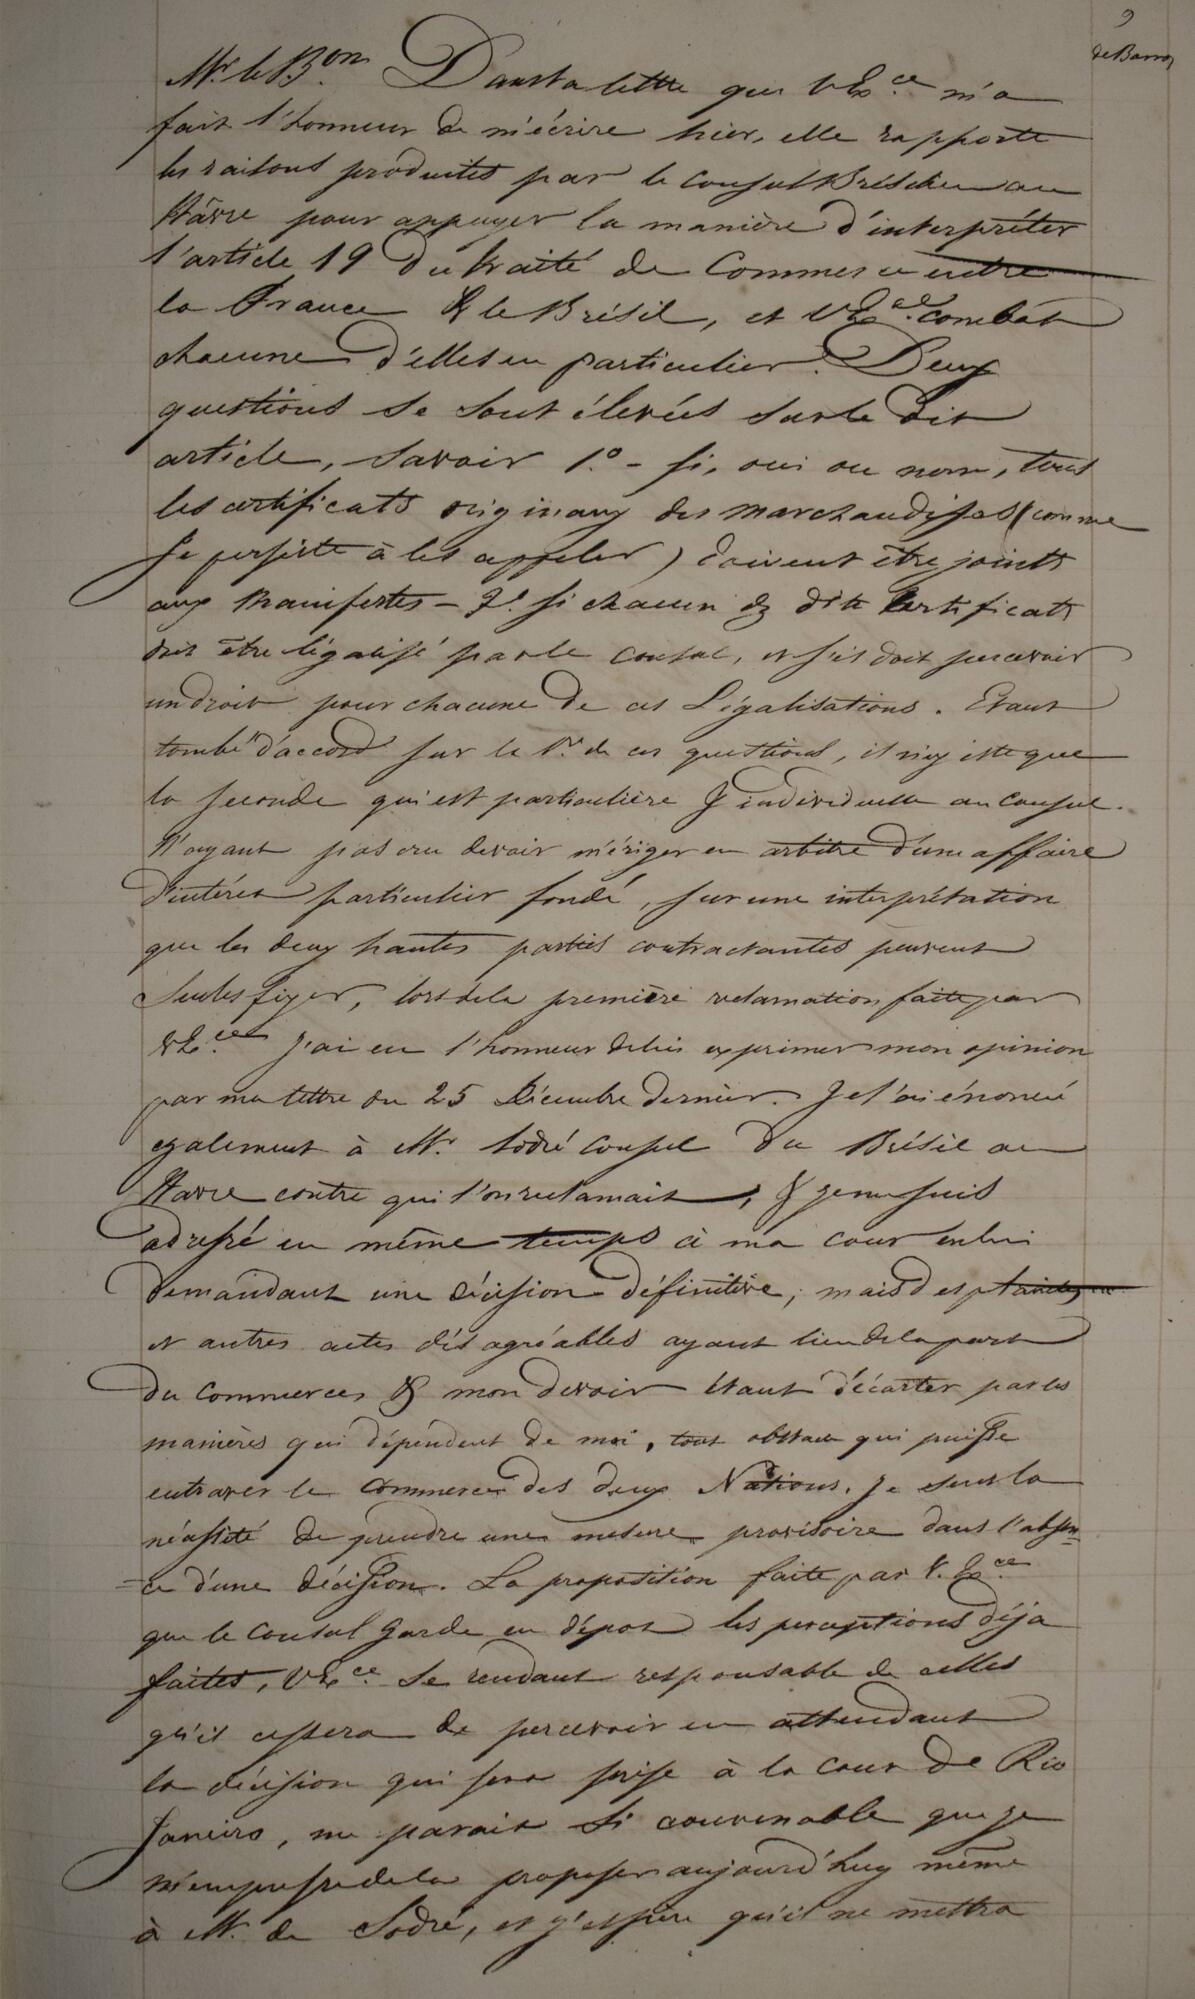 9
de Barros
Mr. le Bon. Dans la lettre que V Exce. m'a
fait l'honneur de m'écrire hier, elle rapporte
les raisons produites par le Consul Brésilien au
Hâvre pour appuyer la manière d'interpréter
l'article 19 du traité de Commerce entre
la France & le Brésil, et V Exce. combat
chacune d'elles en particulier. Deux
questions se sont élevées sur le dit
article, savoir 1.º - si, oui ou nom, tous
les certificats originaux des marchandises (comme
je persiste à les appeler) doivent être joints
aux Manifestes - 2.º si chacun des dits Certificats
doit être légalisé par le Consul, et s'il doit percevoir
un droit pour chacune de ces Légalisations. Etant
tombé d'accord sur la 1re. de ces questions, il n'existe que
la seconde qui est particulière & individuelle au Consul.
N'ayant pas cru devoir m'ériger en arbitre d'une affaire
d'intérêt particulier fondé, sur une interprétation
que les deux hautes parties contractantes peuvent
seules fixer, lors de la première reclamation faite par
V Exce. j'ai eu l'honneur de lui exprimer mon opinion
par ma lettre du 25 Décembre dernier. Je l'ai énoncé
egalement à Mr. Sodré Consul du Brésil au
Havre contre qui l'on reclamait, & je me suis
adressé en même temps à ma cour en lui
demandant une décision définitive; mais des plaintes
et autres actes désagréables ayant lieu de la part
du Commerce, & mon devoir étant d'écarter par les
manières qui dépendent de moi, tout obstacle qui puisse
entraver le Commerce des deux Nations. Je sens la
nécessité de prendre une mesure provisoire dans l'absen=
=ce d'une décision. La proposition faite par V. Exce.
que le Consul garde en dépot les perceptions déja
faites, V Exce. se rendant responsable de celles
qu'il cessera de percevoir en attendant
la décision qui sera prise à la Cour de Rio
Janeiro, me parait si convenable que je
m'empresse de la proposer aujourd'huy même
à M. de Sodré, et j'espère qu'il ne mettra